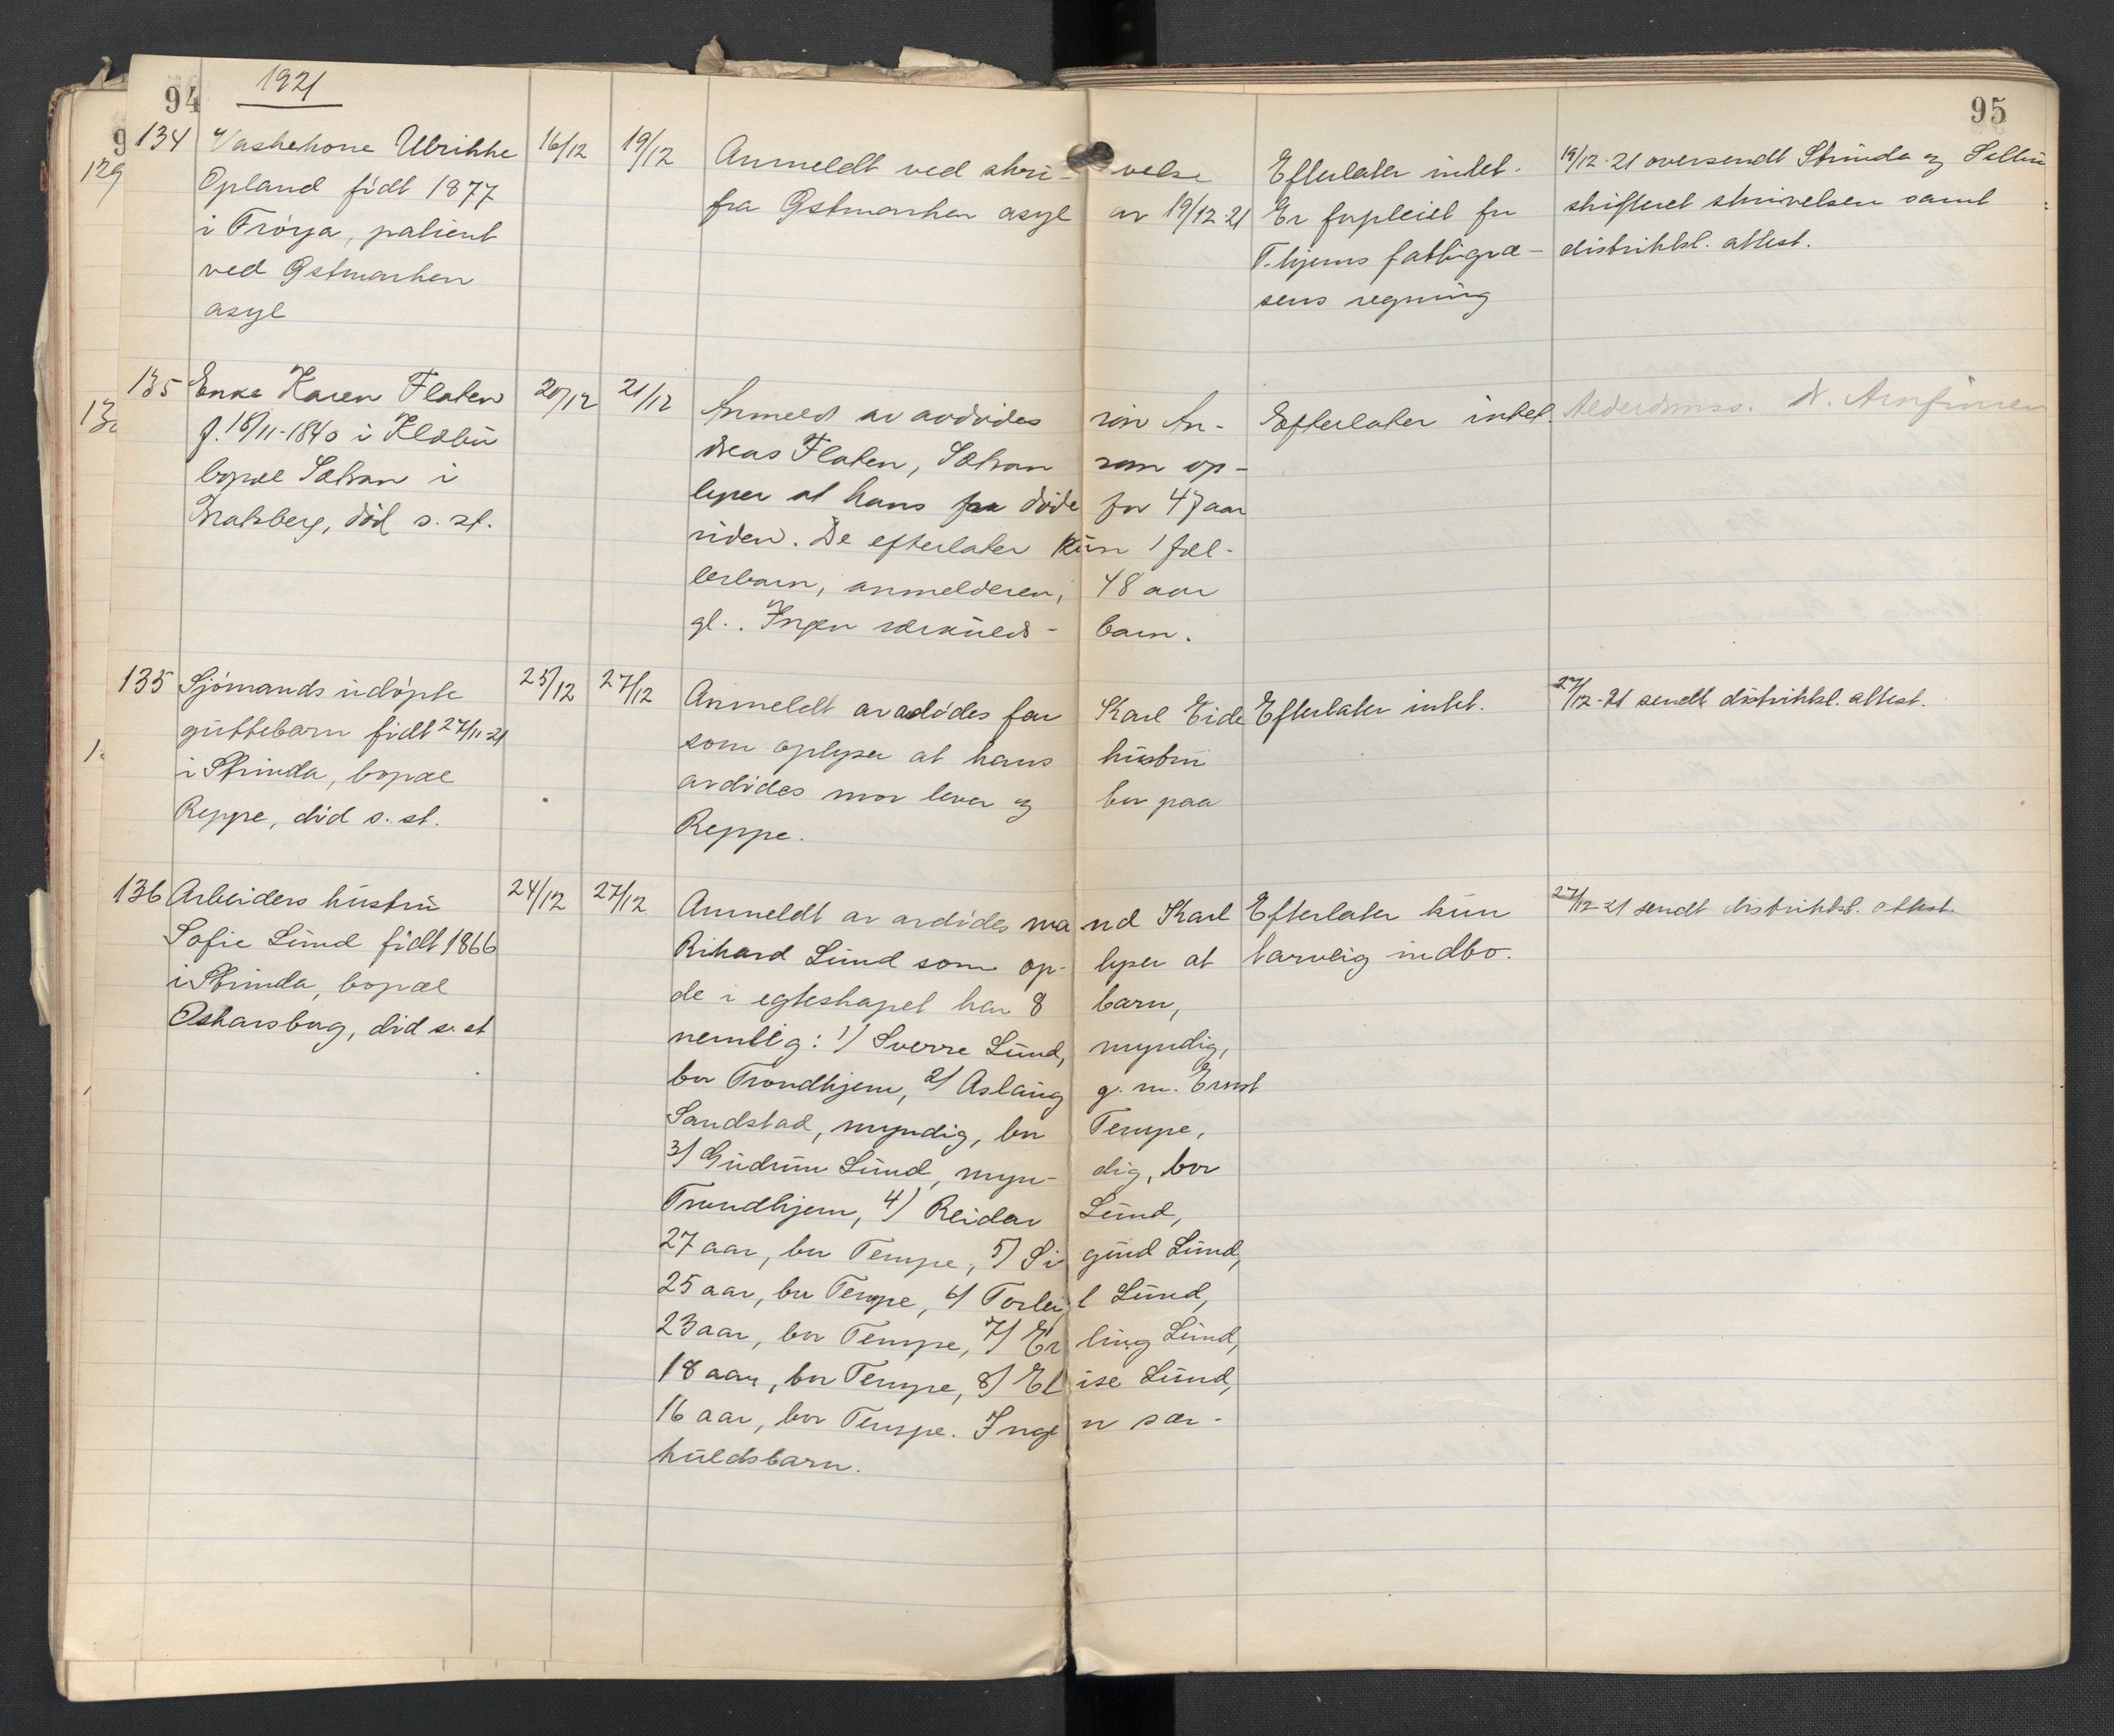 94
1921
95
134 Vaskekone Ulrikke 16/12 19/12 Anmeldt ved skri- velse Efterlater intet. 19/12-21 oversendt Strinda og Selbu
Opland født 1877 fra Østmarken asyl av 19/12 21 Er forpleiet for skifteret skrivelsen samt
i Frøya, patient T.hjems fattigvæ- distriktsl. attest.
ved Østmarken sens regning
asyl
135 Enke Karen Flaten 20/12 21/12 Anmeldt av avdødes søn An- Efterlater intet. Alderdomss. N. Arnfinsen
f. 18/11-1840 i Klæbu dreas Flaten, som op-
bopæl i lyser at hans far døde for 47 aar
Bratsberg, død s. st. siden. De efterlater kun 1 fæl-
lesbarn, anmelderen, 48 aar
gl.. Ingen særkulds- barn.
135 Sjømands udøpte 25/12 27/12 Anmeldt av avdødes far Karl Eide Efterlater intet. 27/12-21 sendt distriktsl. attest.
guttebarn født 27/11-21 som oplyser at hans hustru
i Strinda, bopæl avdødes mor lever og bor paa
Reppe, død s. st. Reppe.
136 Arbeiders hustru 24/12 27/12 Anmeldt av avdødes ma nd Karl Efterlater kun 27/12-21 sendt distriktsl. attest.
Sofie Lund født 1866 Rikard Lund som op- lyser at tarvelig indbo.
i Strinda, bopæl de i egteskapet har 8 barn,
Oskarsborg, død s. st nemlig: 1) Sverre Lund, myndig,
bor Trondhjem, 2) Aslaug g. m. Ernst
Sandstad, myndig, bor Tempe,
3) Gudrun Lund, myn- dig, bor
Trondhjem, 4) Reidar Lund,
27 aar, bor Tempe, 5) Si gurd Lund,
25 aar, bor Tempe, 6) Lund,
23 aar, bor Tempe, 7) Er ling Lund,
18 aar, bor Tempe, 8) El ise Lund,
16 aar, bor Tempe. Inge n sær-
kuldsbarn.